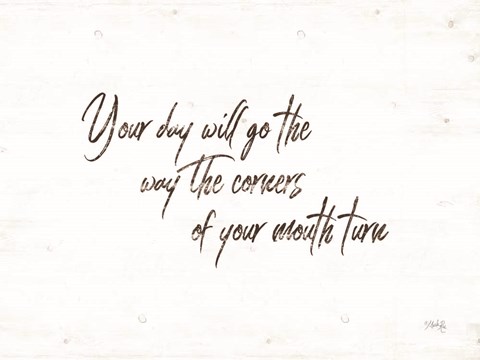 Your day will go the
way the corners
of your mouth turn